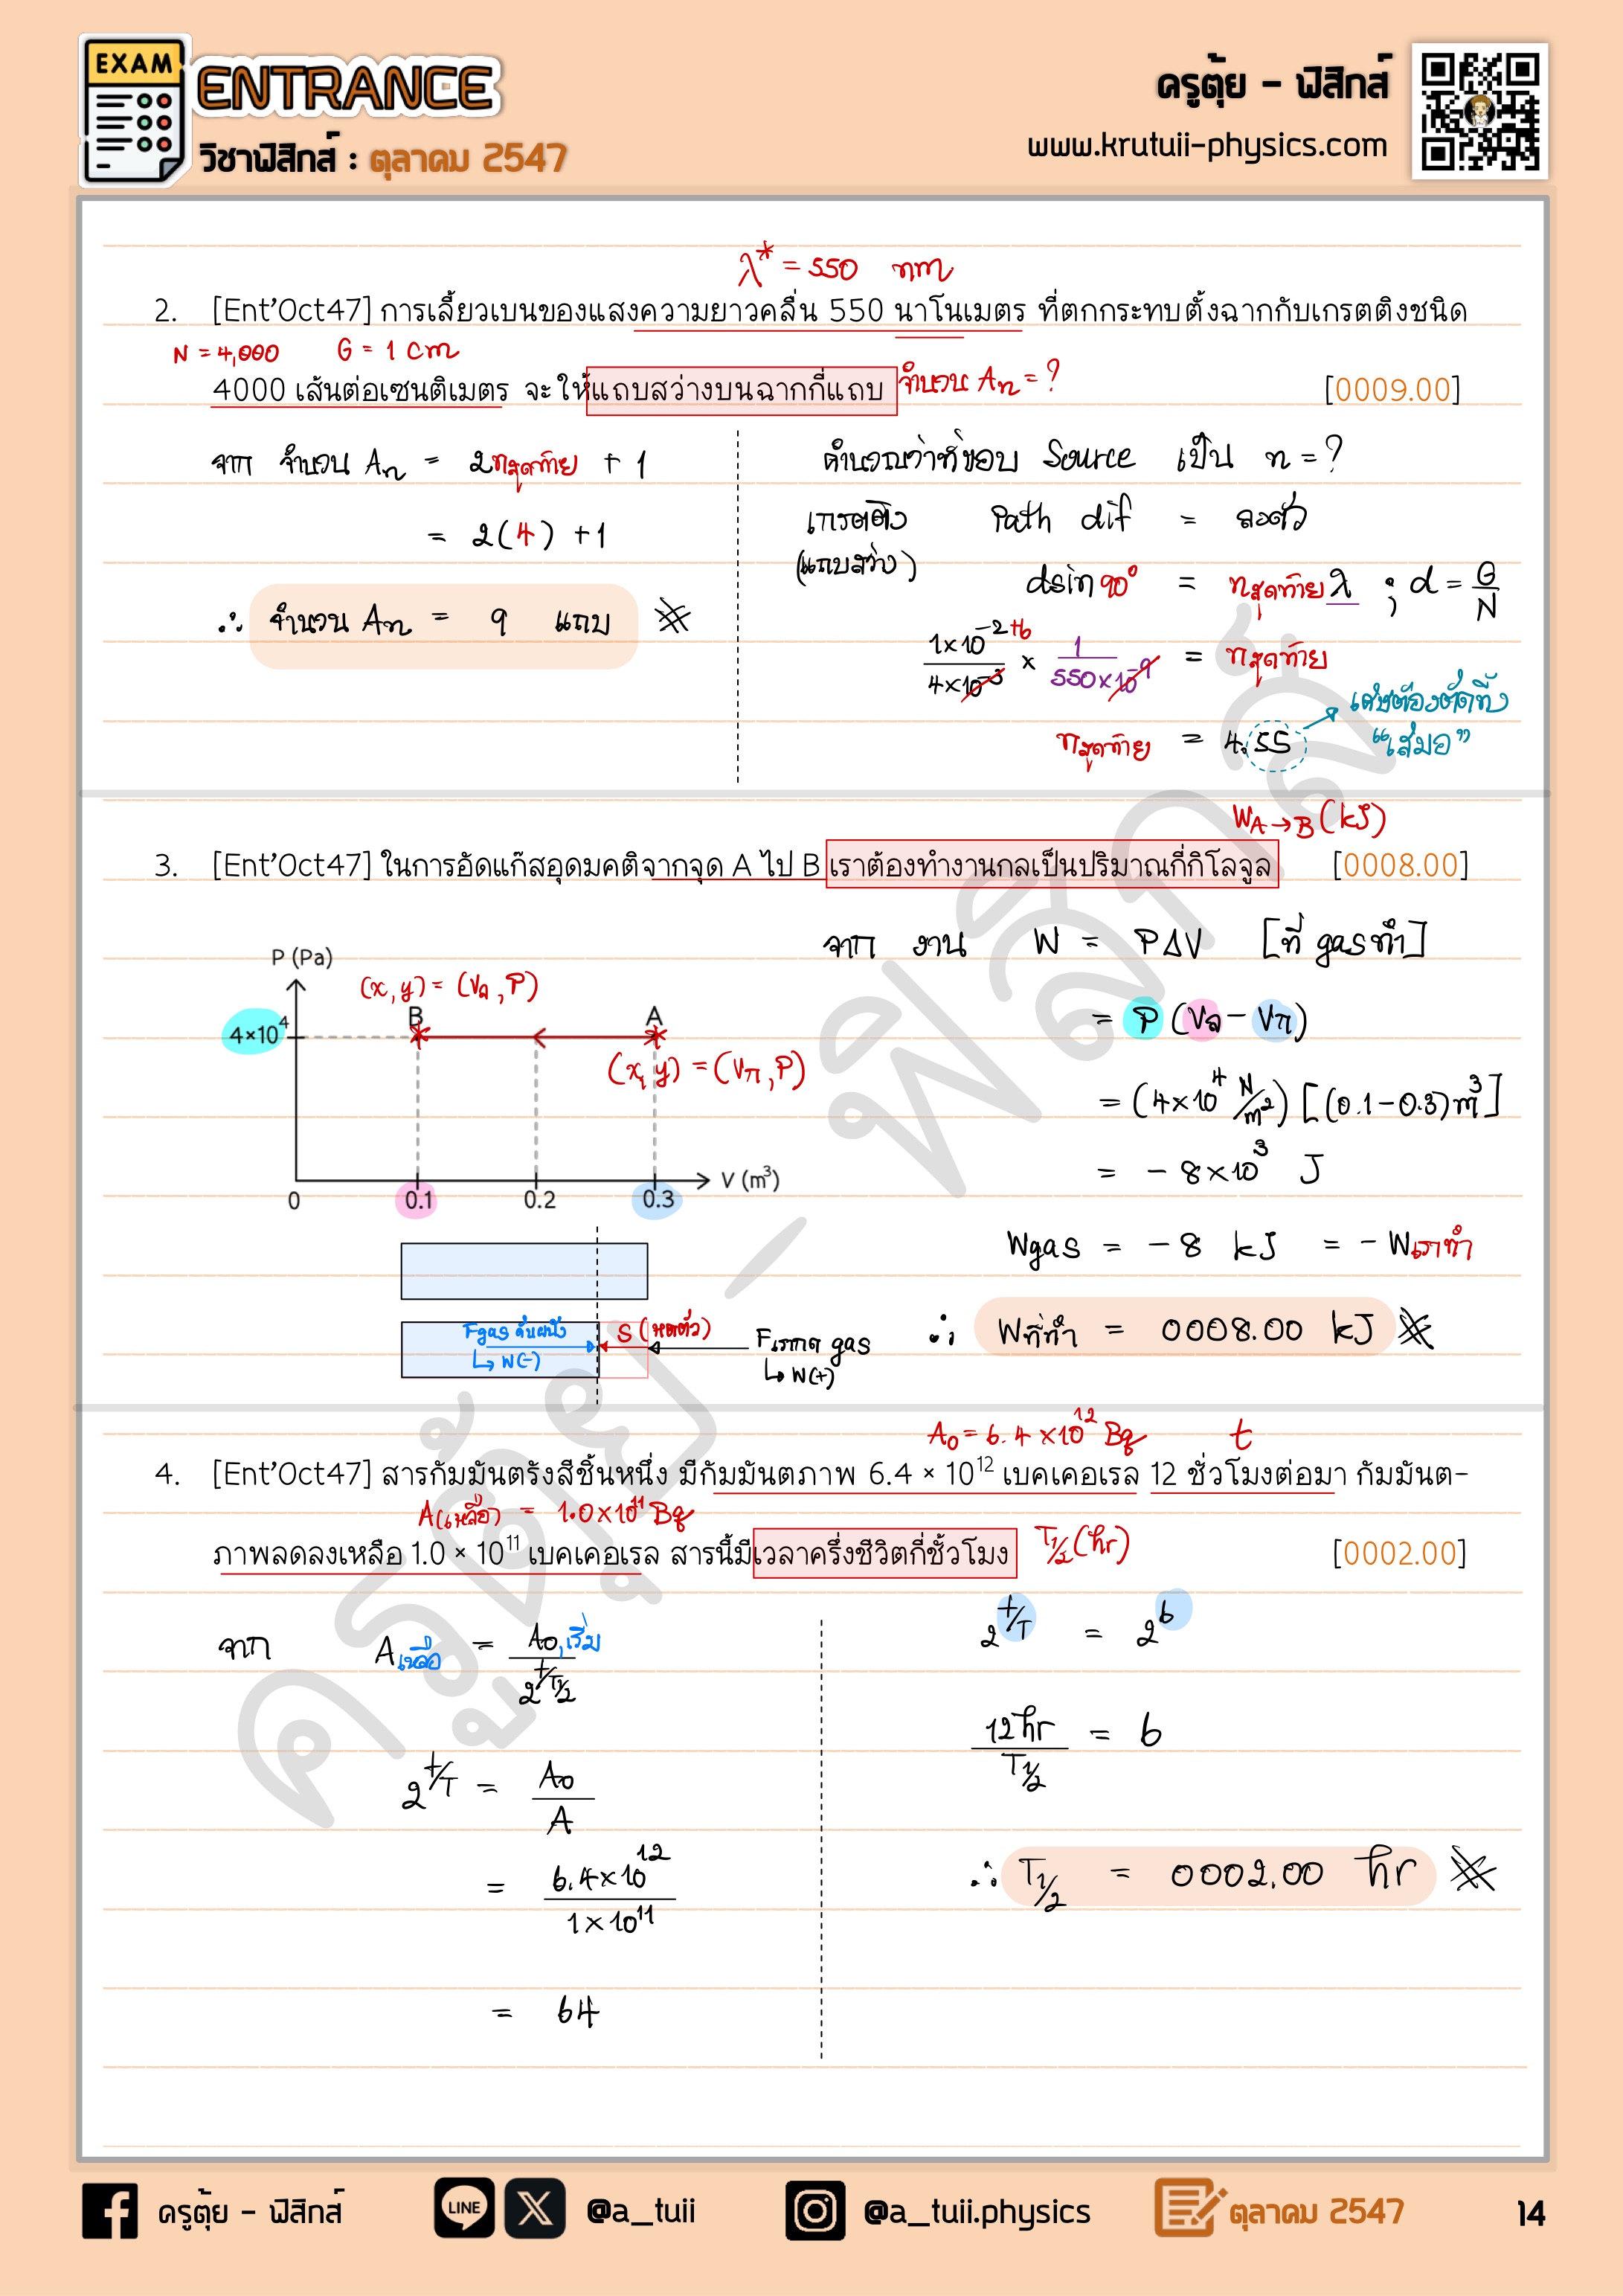 EXAM
ENTRANCE
วิชาฟิสิกส์ : ตุลาคม 2547
ครูตุ้ย - ฟิสิกส์
www.krutuii-physics.com
λ* = 550 nm
2. [Ent'Oct47] การเลี้ยวเบนของแสงความยาวคลื่น 550 นาโนเมตร ที่ตกกระทบตั้งฉากกับเกรตติงชนิด
N = 4,000 G = 1 cm
4000 เส้นต่อเซนติเมตร จะให้แถบสว่างบนฉากกี่แถบ จำนวน An = ? [0009.00]
จาก จำนวน An = 2nสุดท้าย + 1
= 2(4) + 1
∴ จำนวน An = 9 แถบ
คำนวณว่าที่ขอบ Source เป็น n = ?
เกรตติง Path dif = ลงตัว
(แถบสว่าง)
dsin90° = nสุดท้าย λ ; d = G/N
1×10^-2+6 / 4×10^-3 × 1 / 550×10^-9 = nสุดท้าย
nสุดท้าย = 4.55
เศษต้องตัดทิ้ง
“เสมอ”
WA→B (kJ)
3. [Ent'Oct47] ในการอัดแก๊สอุดมคติจากจุด A ไป B เราต้องทำงานกลเป็นปริมาณกี่กิโลจูล [0008.00]
P (Pa)
(x,y) = (Vล, P)
B A
4×10⁴
(x, y) = (Vก, P)
V (m³)
0 0.1 0.2 0.3
Fgas ดันผนัง
↳ W(-)
S (หดตัว)
Fเรากด gas
↳ W(+)
จาก งาน W = PΔV [ที่ gas ทำ]
= P (Vล - Vก)
= (4×10⁴ N/m²) [(0.1 - 0.3) m³]
= - 8×10³ J
Wgas = - 8 kJ = - Wเราทำ
∴ Wที่ทำ = 0008.00 kJ
A₀ = 6.4 ×10¹² Bq t
4. [Ent'Oct47] สารกัมมันตรังสีชิ้นหนึ่ง มีกัมมันตภาพ 6.4 × 10¹² เบคเคอเรล 12 ชั่วโมงต่อมา กัมมันต-
A(เหลือ) = 1.0×10¹¹ Bq
ภาพลดลงเหลือ 1.0 × 10¹¹ เบคเคอเรล สารนี้มีเวลาครึ่งชีวิตกี่ชั้วโมง T1/2 (hr) [0002.00]
จาก Aเหลือ = A₀,เริ่ม / 2^t/T1/2
2^t/T = A₀ / A
= 6.4×10¹² / 1×10¹¹
= 64
2^t/T = 2^6
12 hr / T1/2 = 6
∴ T1/2 = 0002.00 hr
ครูตุ้ย - ฟิสิกส์
ครูตุ้ย - ฟิสิกส์
LINE
@a_tuii
@a_tuii.physics
ตุลาคม 2547
14